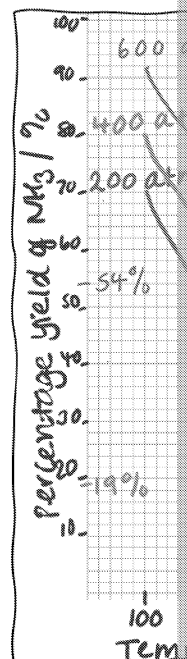 Percentage yield of NH3 / %
100
90
80
70
60
50
40
30
20
10
600
400 a
200 at
54%
19%
100
Tem